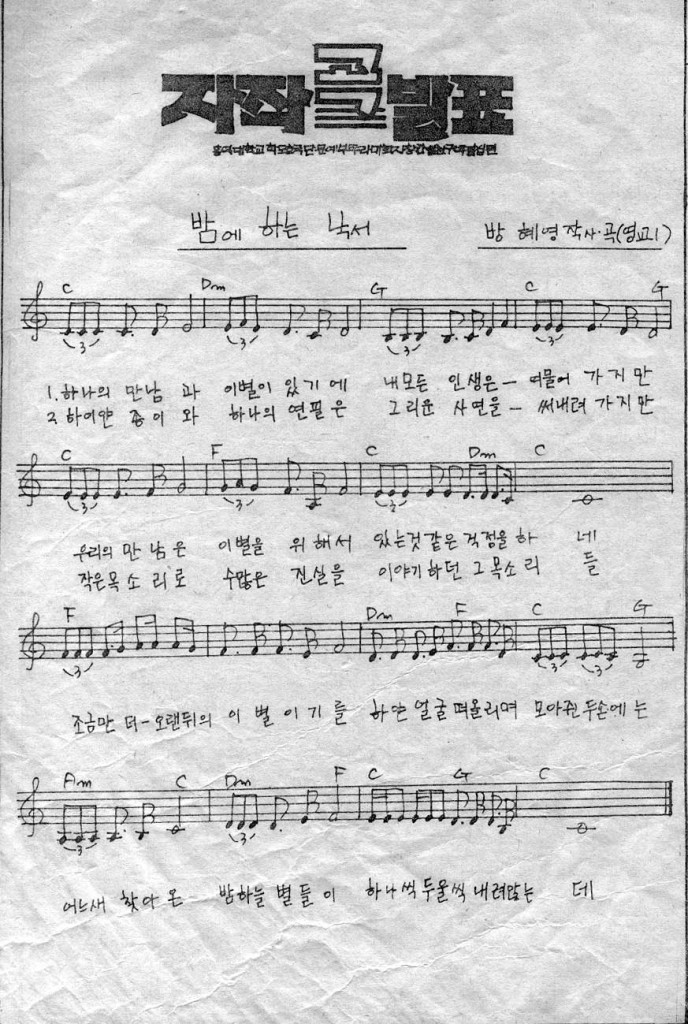 자작곡 발표
밤에 하는 낙서
방 혜영 작사·곡(영교1)
C Dm G C G
1. 하나의 만남 과 이별이 있기에 내모든 인생은 - 떠물어 가지만
2. 하이얀 종이 와 하나의 연필은 그리운 사연을 - 써내려 가지만
C F C Dm C
우리의 만남은 이별을 위해서 있는것 같은 걱정을 하 네
작은목소리로 수많은 진실을 이야기하던 그 목소리 들
F Dm F C G
조금만 더 - 오랜뒤의 이별이기를 하얀 얼굴 떠올리며 모아쥔 두손에는
Am C Dm F C G C
어느새 찾아온 밤하늘 별들이 하나씩 두울씩 내려앉는 데